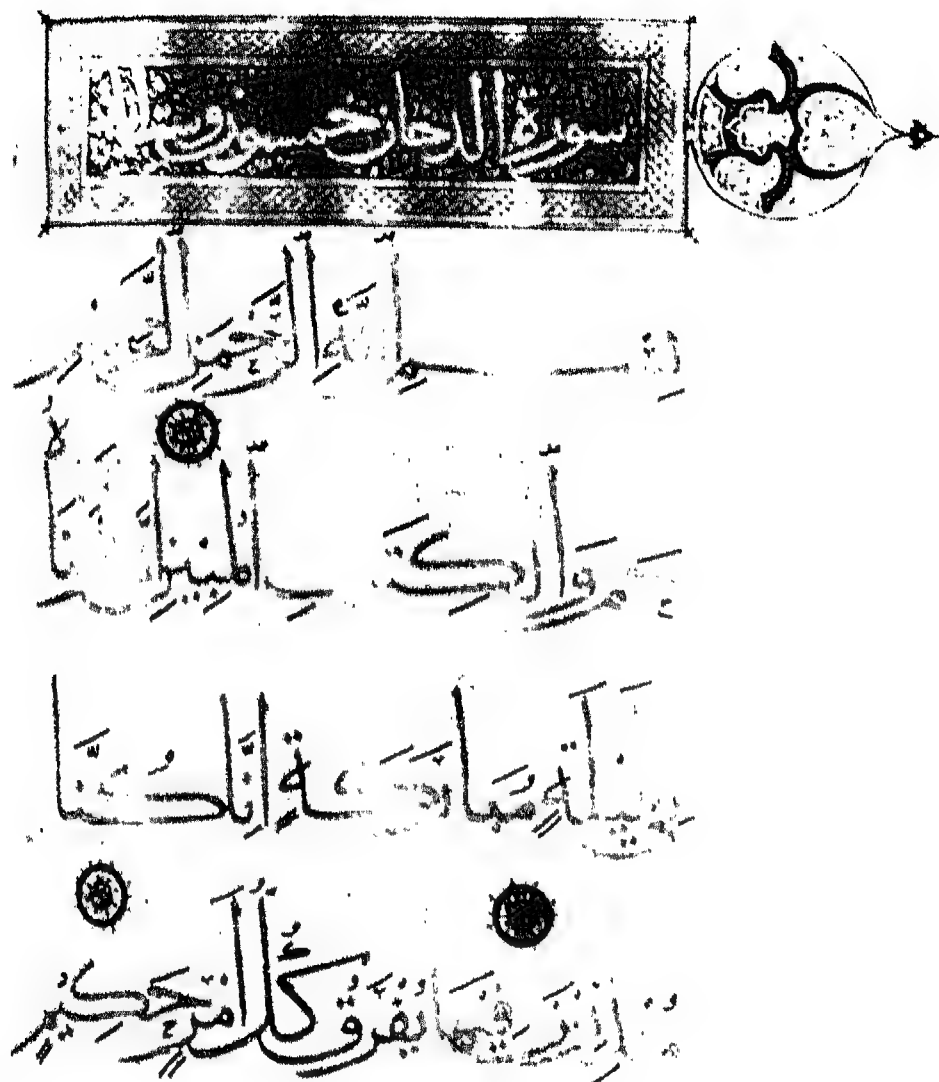 سورة الدخان خمسون و
بِسْمِ اللَّهِ الرَّحْمَنِ الرَّحِيمِ
حم وَالْكِتَبِ الْمُبِينِ اِنَّا اَنْزَلْنَاهُ
فِي لَيْلَةٍ مُبَارَكَةٍ اِنَّا كُنَّا
مُنْذِرِينَ فِيهَا يُفْرَقُ كُلُّ اَمْرٍ حَكِيمٍ